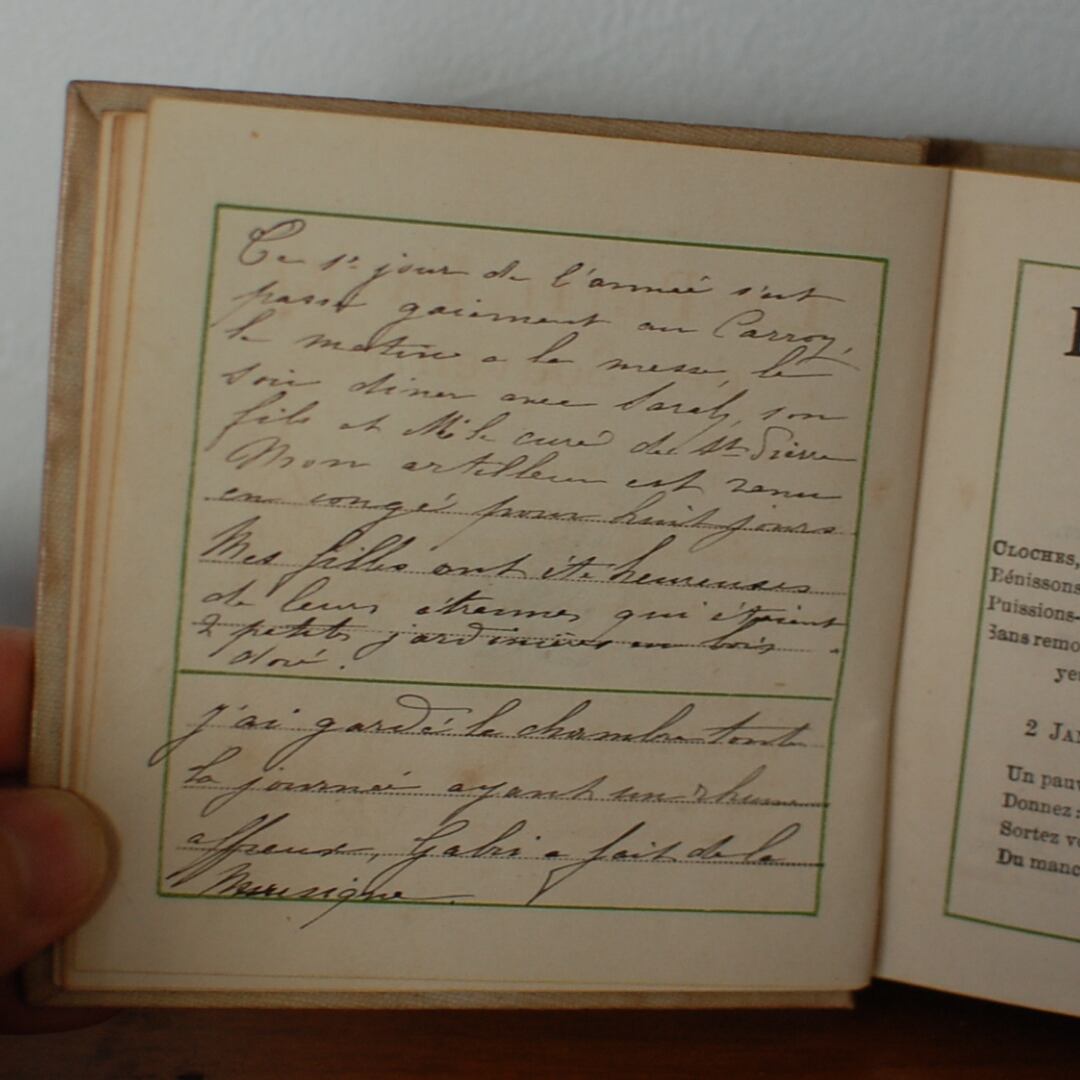 Ce 1r jour de l'année s'est
passé gaiement au Carroy,
le matin a la messe, le
soir diner avec Sarah, son
fils et Mr le curé de St Pierre
Mon artilleur est venu
en congé pour huit jours
Mes filles ont été heureuses
de leurs étrennes qui étaient
2 petits jardinières en bois
doré.
J'ai gardé la chambre toute
la journée ayant un rhume
affreux, Gabri a fait de la
musique.
CLOCHES,
Bénissons
Puissions-
Sans remo
yeu
2 JAN
Un pauv
Donnez
Sortez vo
Du manc